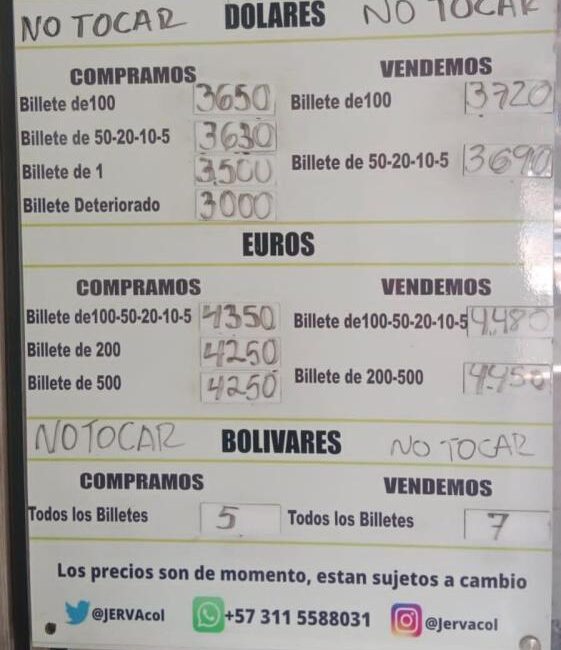 NO TOCAR DOLARES NO TOCAR
COMPRAMOS VENDEMOS
Billete de100 3650 Billete de100 3720
Billete de 50-20-10-5 3630
Billete de 50-20-10-5 3690
Billete de 1 3,500
Billete Deteriorado 3000
EUROS
COMPRAMOS VENDEMOS
Billete de100-50-20-10-5 4350 Billete de100-50-20-10-5 4,480
Billete de 200 4250
Billete de 500 4250 Billete de 200-500 4.450
NO TOCAR BOLIVARES NO TOCAR
COMPRAMOS VENDEMOS
Todos los Billetes 5 Todos los Billetes 7
Los precios son de momento, estan sujetos a cambio
@JERVAcol +57 311 5588031 @Jervacol